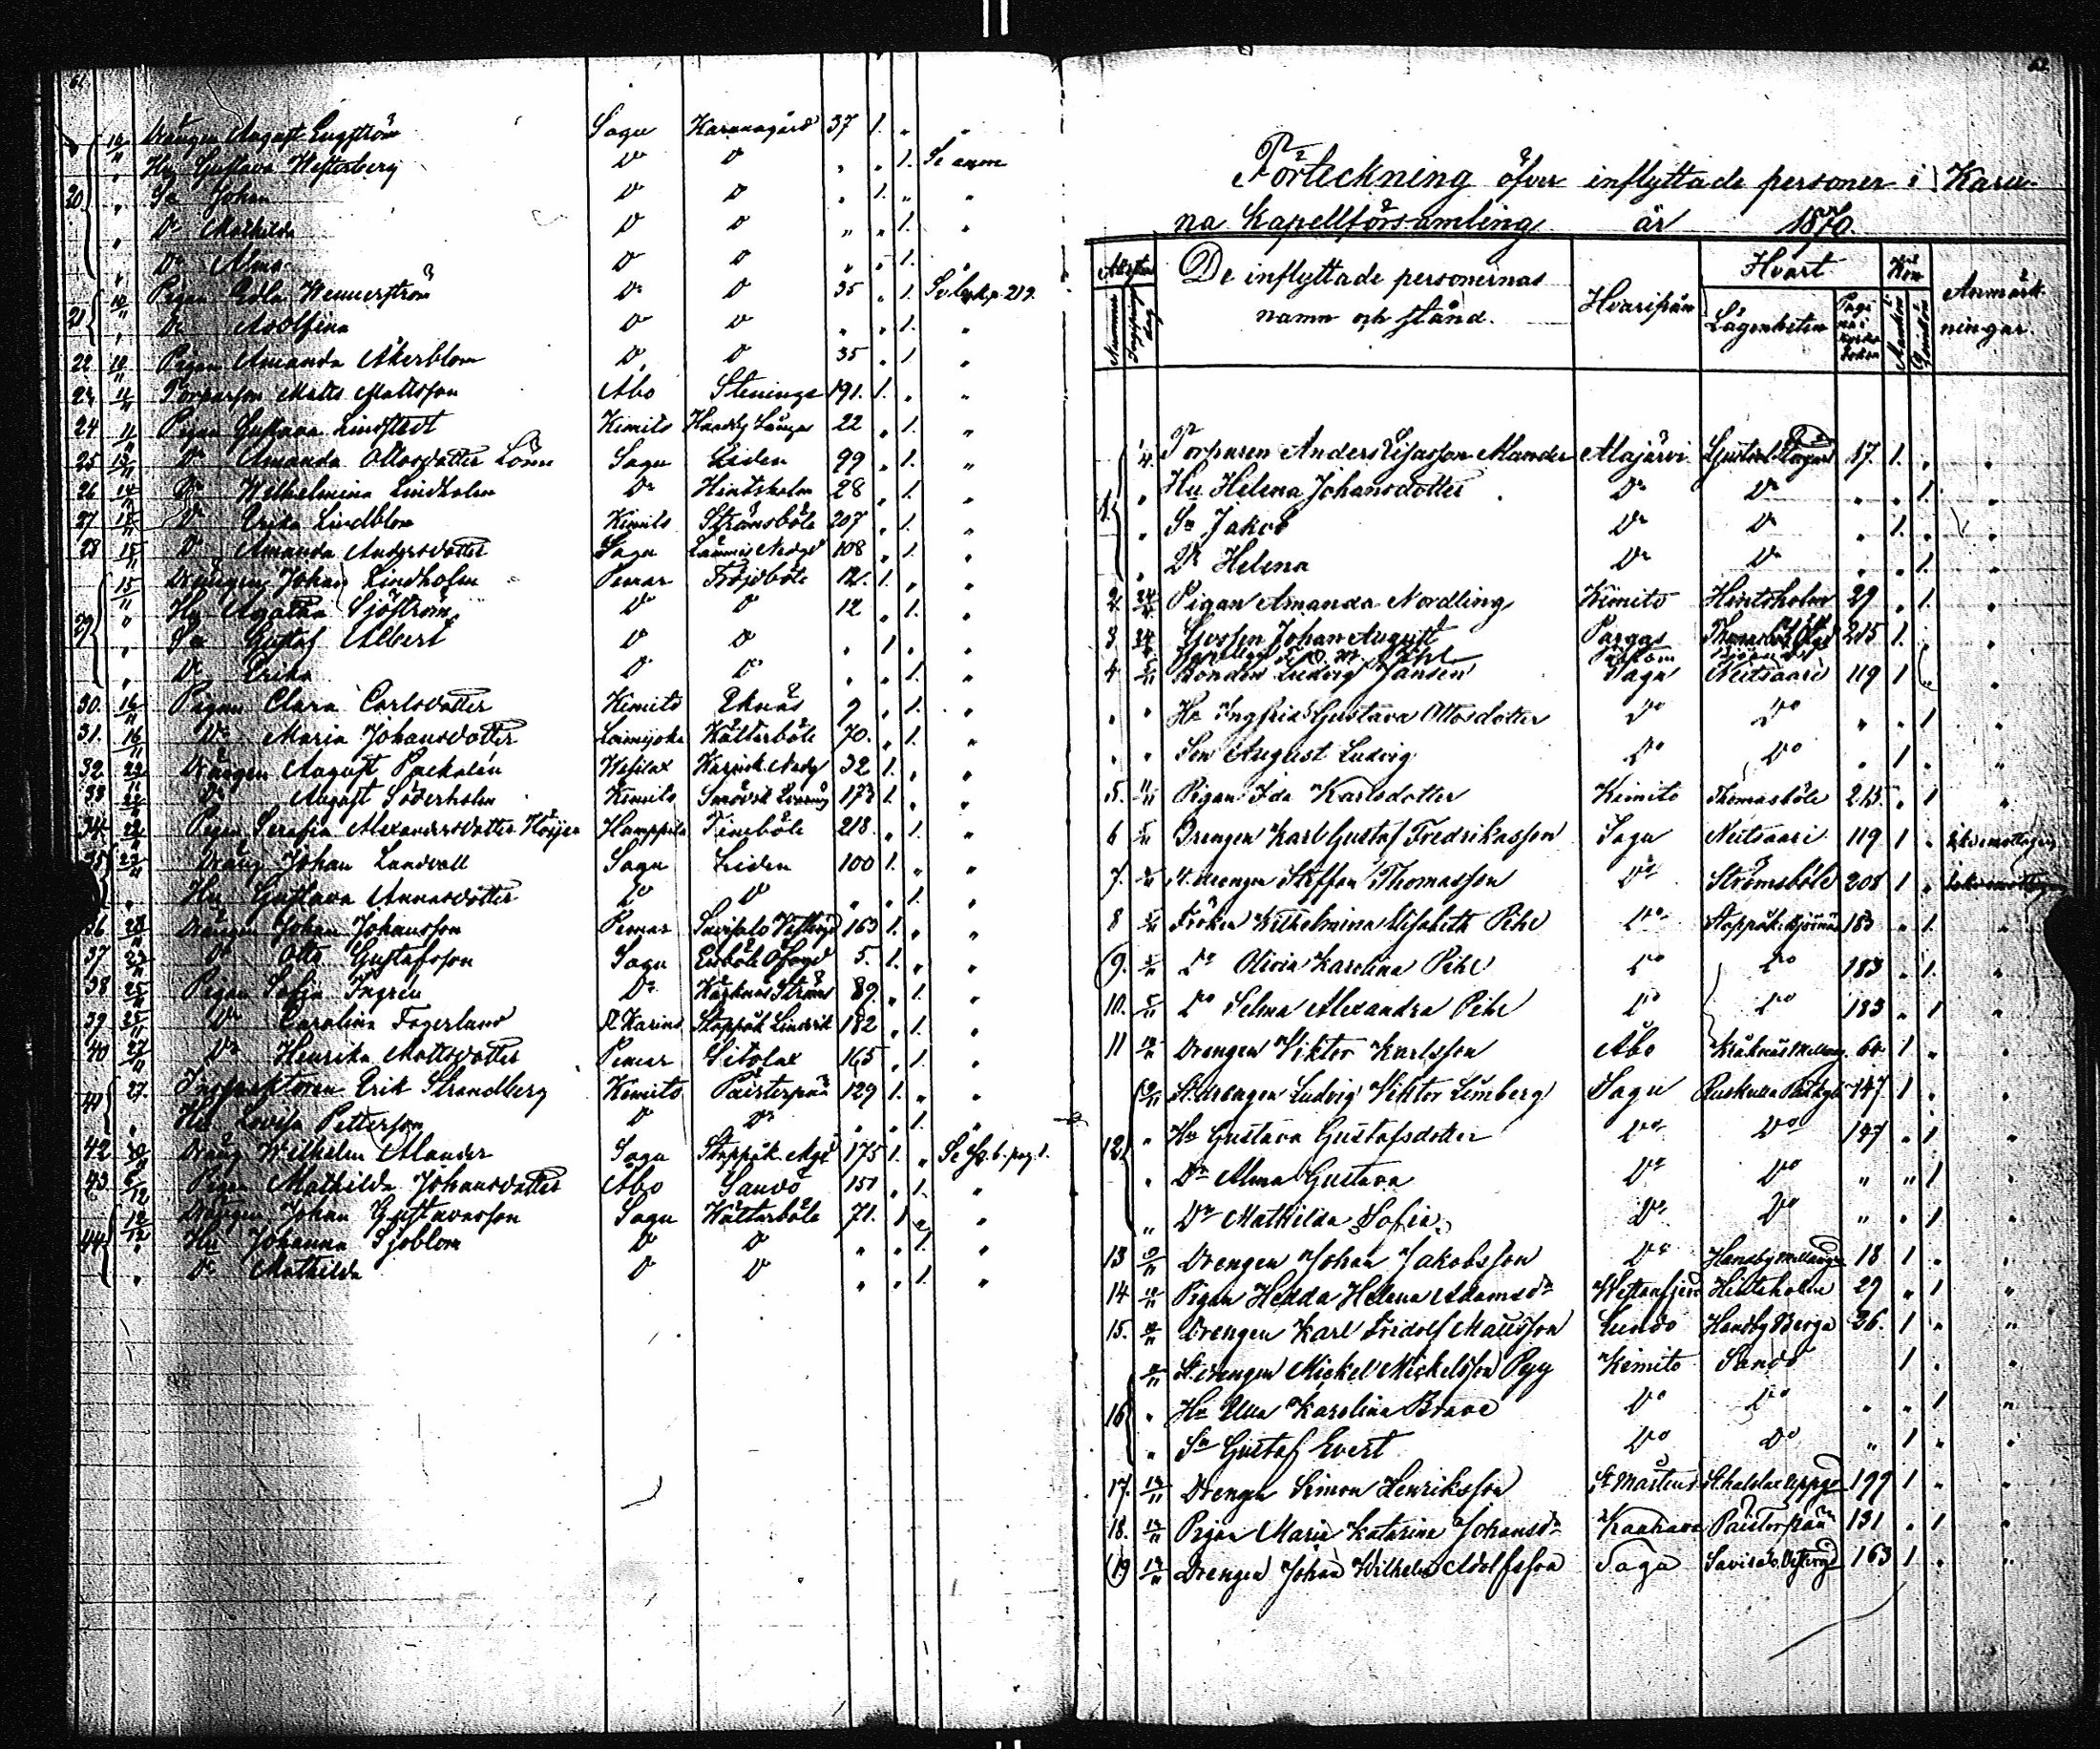 61.
19/11 Drängen August Engström Sagu Karunagård 37 1. „ „
„ Hu Gustava Westerberg Do Do „ „ 1. Se anm
20. „ Se Johan Do Do „ 1. „ „
„ Dr Mathilda Do Do „ „ 1. „
„ Dr Alma Do Do „ „ 1. „
21 10/11 Pigan Edla Wennerström Do Do 35 „ 1. p. 219.
„ Dr Adolfina Do Do „ „ 1. „
22 10/11 Pigan Amanda Åkerblom Do Do 35 „ 1 „
23 11/11 Torparson Matts Mattsson Åbo Steninge 191. 1. „ „
24 11/11 Pigan Gustava Lindstedt Kimito Handby Långas 22 „ 1. „
25 13/11 Do Amanda Ottosdotter Lönn Sagu Liden 99 „ 1. „
26 14/11 Do Wilhelmina Lindholm Do Hintsholm 28 „ 1. „
27 15/11 Do Erika Lindblom Kimito Strömsböle 207 „ 1. „
28 15/11 Do Amanda Andersdotter Sagu Nedgd 108 „ 1. „
29 15/11 Drängen Johan Lindholm Pemar Fröjdböle 12. 1. „ „
„ Hu Agatha Sjöström Do Do 12 „ 1. „
„ Se Gustaf Albert Do Do „ 1 „ „
„ Dr Erika Do Do „ „ 1. „
30. 16/11 Pigan Clara Carlsdotter Kimito Eknäs 9 „ 1. „
31. 16/11 Do Maria Johansdotter Loimijoki Kätterböle 70. „ 1. „
32 22/11 Drängen August Packalén Nedg 32 1. „ „
33 22/11 Do August Söderholm Kimito 173 1. „ „
34 22/11 Pigan Serafia Alexandersdotter Höijer Timeböle 218. „ 1. „
35 22/11 Dräng Johan Lundvall Sagu Liden 100 1. „ „
„ Hu Gustava Annasdotter Do Do „ „ 1. „
36 28/11 Drängen Johan Johansson Pemar Savisalo 163 1. „ „
37 22/11 Do Otto Gustafsson Sagu Enböle Öfvgd 5. 1. „ „
38 25/11 Pigan Sofia Ingren Do Kräknäs Ströms 89. „ 1. „
39 25/11 Do Carolina Fagerlund St Karins Stappäk Lindvik 182 „ 1. „
40 27/11 Do Henrika Mattsdotter Pemar Sitolax 165 „ 1. „
41 27. Inspektoren Erik Strandberg Kimito Päisterpää 129 1. „ „
„ Hu Lovisa Petterson Do Do „ „ 1. „
42 Dräng Wilhelm Alander Sagu Stappäk 175 1. „ pag. 1.
43 6/12 Pigan Mathilda Johansdotter Åbo Sandö 151 „ 1. „
44 12/12 Drängen Johan Gustavsson Sagu Kätterböle 71. 1 „ „
„ Hu Johanna Sjöblom Do Do „ „ 1. „
„ Dr Mathilda Do Do „ „ 1. „
62.
Förteckning öfver inflyttade personer i Karu-
na Kapellförsamling år 1870.
Attester
Nummer
De inflyttade personernas
namn och stånd.
Hvarifrån
Hvart
Lägenheten
Pagi-
na i
kyrko-
boken
Kön
Mankön
Qvinkön
Anmärk-
ningar.
1. Torparen Anders Elisasson Alander Alajärvi 17. 1. „ „
„ Hu Helena Johansdotter Do Do „ „ 1. „
„ Sn Jakob Do Do „ 1. „ „
„ Dr Helena Do Do „ „ 1. „
2 24/ Pigan Amanda Nordling Kimito Hintsholm 29 „ 1. „
3 24/ Gossen Johan August Pargas 215 1. „
4 Bonden Ludvig Jansén Sagu Neitsaari 119 1 „ „
„ „ Hu Ingfrid Gustava Ottosdotter Do Do „ „ 1 „
„ „ Son August Ludvig Do Do „ 1 „ „
5. Pigan Ida Karlsdotter Kimito Thomasböle 215. „ 1 „
6 Drengen Karl Gustaf Fredriksson Sagu Neitsaari 119 1 „
7. St. drengen Steffan Thomasson Do Strömsböle 208 1 „
8 Fröken Wilhelmina Elisabeth Pihl Do Stappäk Björnäs 183 „ 1. „
9. Do Olivia Karolina Pihl Do Do 183 „ 1. „
10. Do Selma Alexandra Pihl Do Do 183 „ 1 „
11 Drengen Viktor Karlsson Åbo Kräknäs 60 1 „ „
12. St. drengen Ludvig Viktor Limberg Sagu 147 1 „ „
„ Hu Gustava Gustafsdotter Do Do 147 „ 1 „
„ Dr Alma Gustava Do Do „ „ 1 „
„ Dr Mathilda Sofia Do Do „ „ 1 „
13 Drengen Johan Jakobsson Do Handby Mellangd 18 1 „ „
14 Pigan Hedda Helena Adamsdr Westanfjerd Hintsholm 29 „ 1 „
15. Drengen Karl Fridolf Mausson Lundo Handby Berga 36. 1 „ „
16 St. drengen Mickel Mickelsson Pegg Kimito Sandö 1 „ „
„ Hu Ulla Karolina Brave Do Do „ „ 1 „
„ Sn Gustaf Evert Do Do „ 1 „ „
17. Drengen Simon Henriksson St Mårtens Uppgd 199 1 „ „
18. Pigan Maria Katarina Johansdr Kauhava Päisterpää 131 „ 1 „
19 Drengen Johan Wilhelm Adolfsson Sagu Savisalo 163 1 „ „